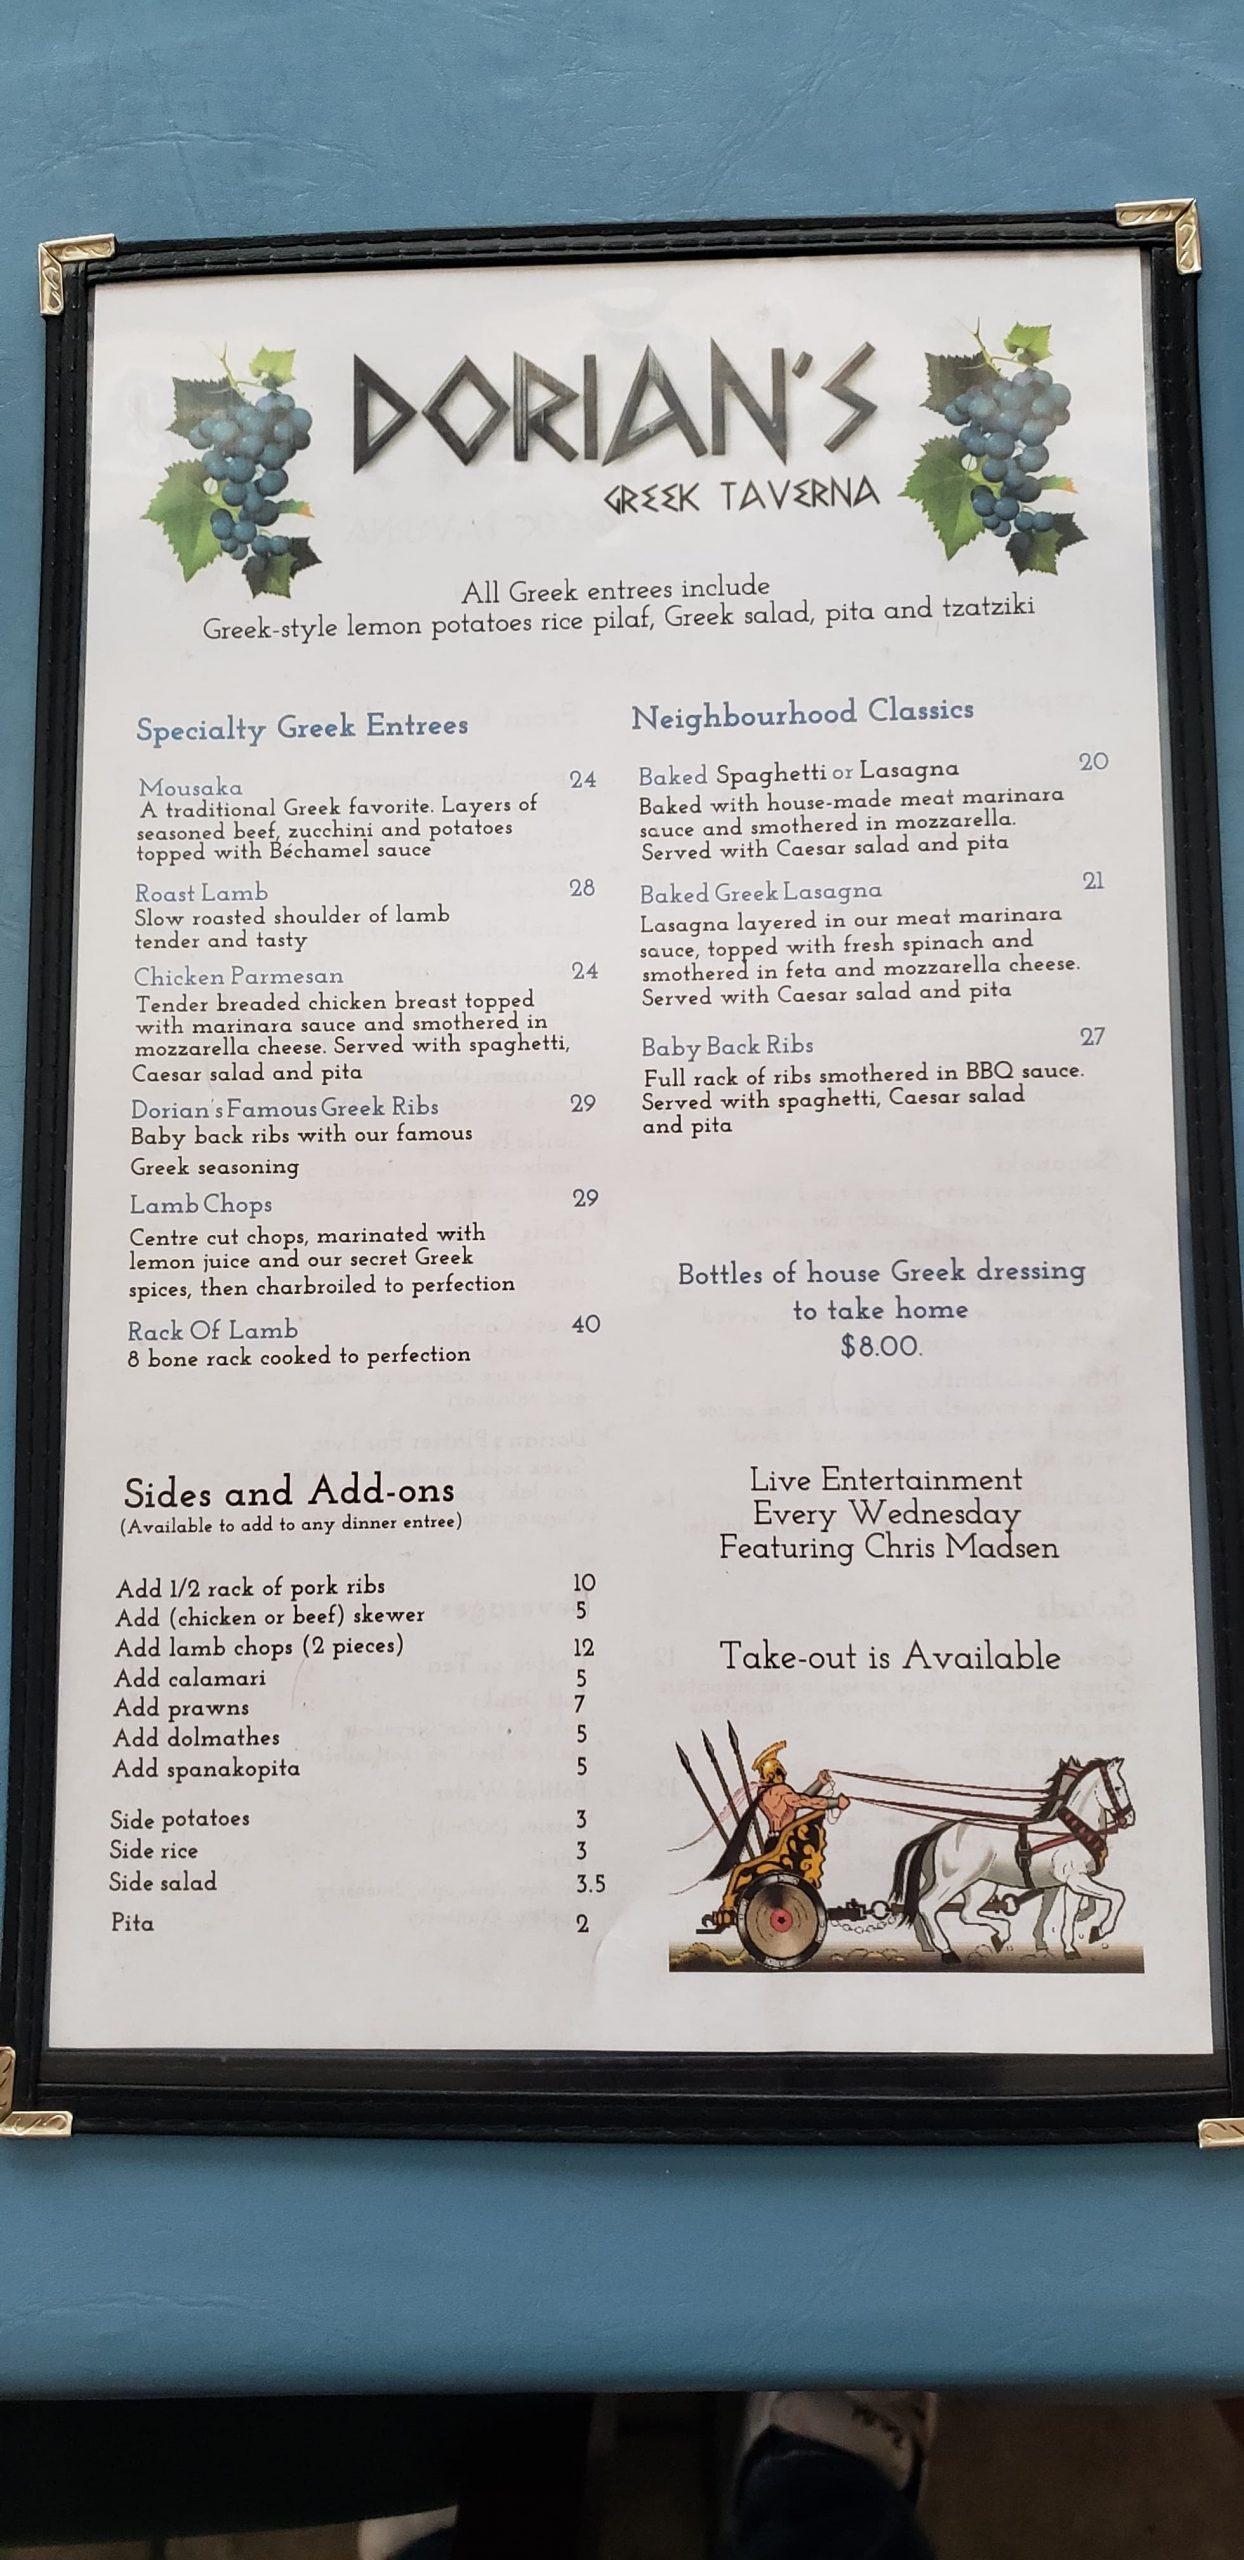 DORIAN'S
GREEK TAVERNA
All Greek entrees include
Greek-style lemon potatoes rice pilaf, Greek salad, pita and tzatziki
Specialty Greek Entrees
Mousaka 24
A traditional Greek favorite. Layers of
seasoned beef, zucchini and potatoes
topped with Béchamel sauce
Roast Lamb 28
Slow roasted shoulder of lamb
tender and tasty
Chicken Parmesan 24
Tender breaded chicken breast topped
with marinara sauce and smothered in
mozzarella cheese. Served with spaghetti,
Caesar salad and pita
Dorian's Famous Greek Ribs 29
Baby back ribs with our famous
Greek seasoning
Lamb Chops 29
Centre cut chops, marinated with
lemon juice and our secret Greek
spices, then charbroiled to perfection
Rack Of Lamb 40
8 bone rack cooked to perfection
Sides and Add-ons
(Available to add to any dinner entree)
Add 1/2 rack of pork ribs 10
Add (chicken or beef) skewer 5
Add lamb chops (2 pieces) 12
Add calamari 5
Add prawns 7
Add dolmathes 5
Add spanakopita 5
Side potatoes 3
Side rice 3
Side salad 3.5
Pita 2
Neighbourhood Classics
Baked Spaghetti or Lasagna 20
Baked with house-made meat marinara
sauce and smothered in mozzarella.
Served with Caesar salad and pita
Baked Greek Lasagna 21
Lasagna layered in our meat marinara
sauce, topped with fresh spinach and
smothered in feta and mozzarella cheese.
Served with Caesar salad and pita
Baby Back Ribs 27
Full rack of ribs smothered in BBQ sauce.
Served with spaghetti, Caesar salad
and pita
Bottles of house Greek dressing
to take home
$8.00.
Live Entertainment
Every Wednesday
Featuring Chris Madsen
Take-out is Available